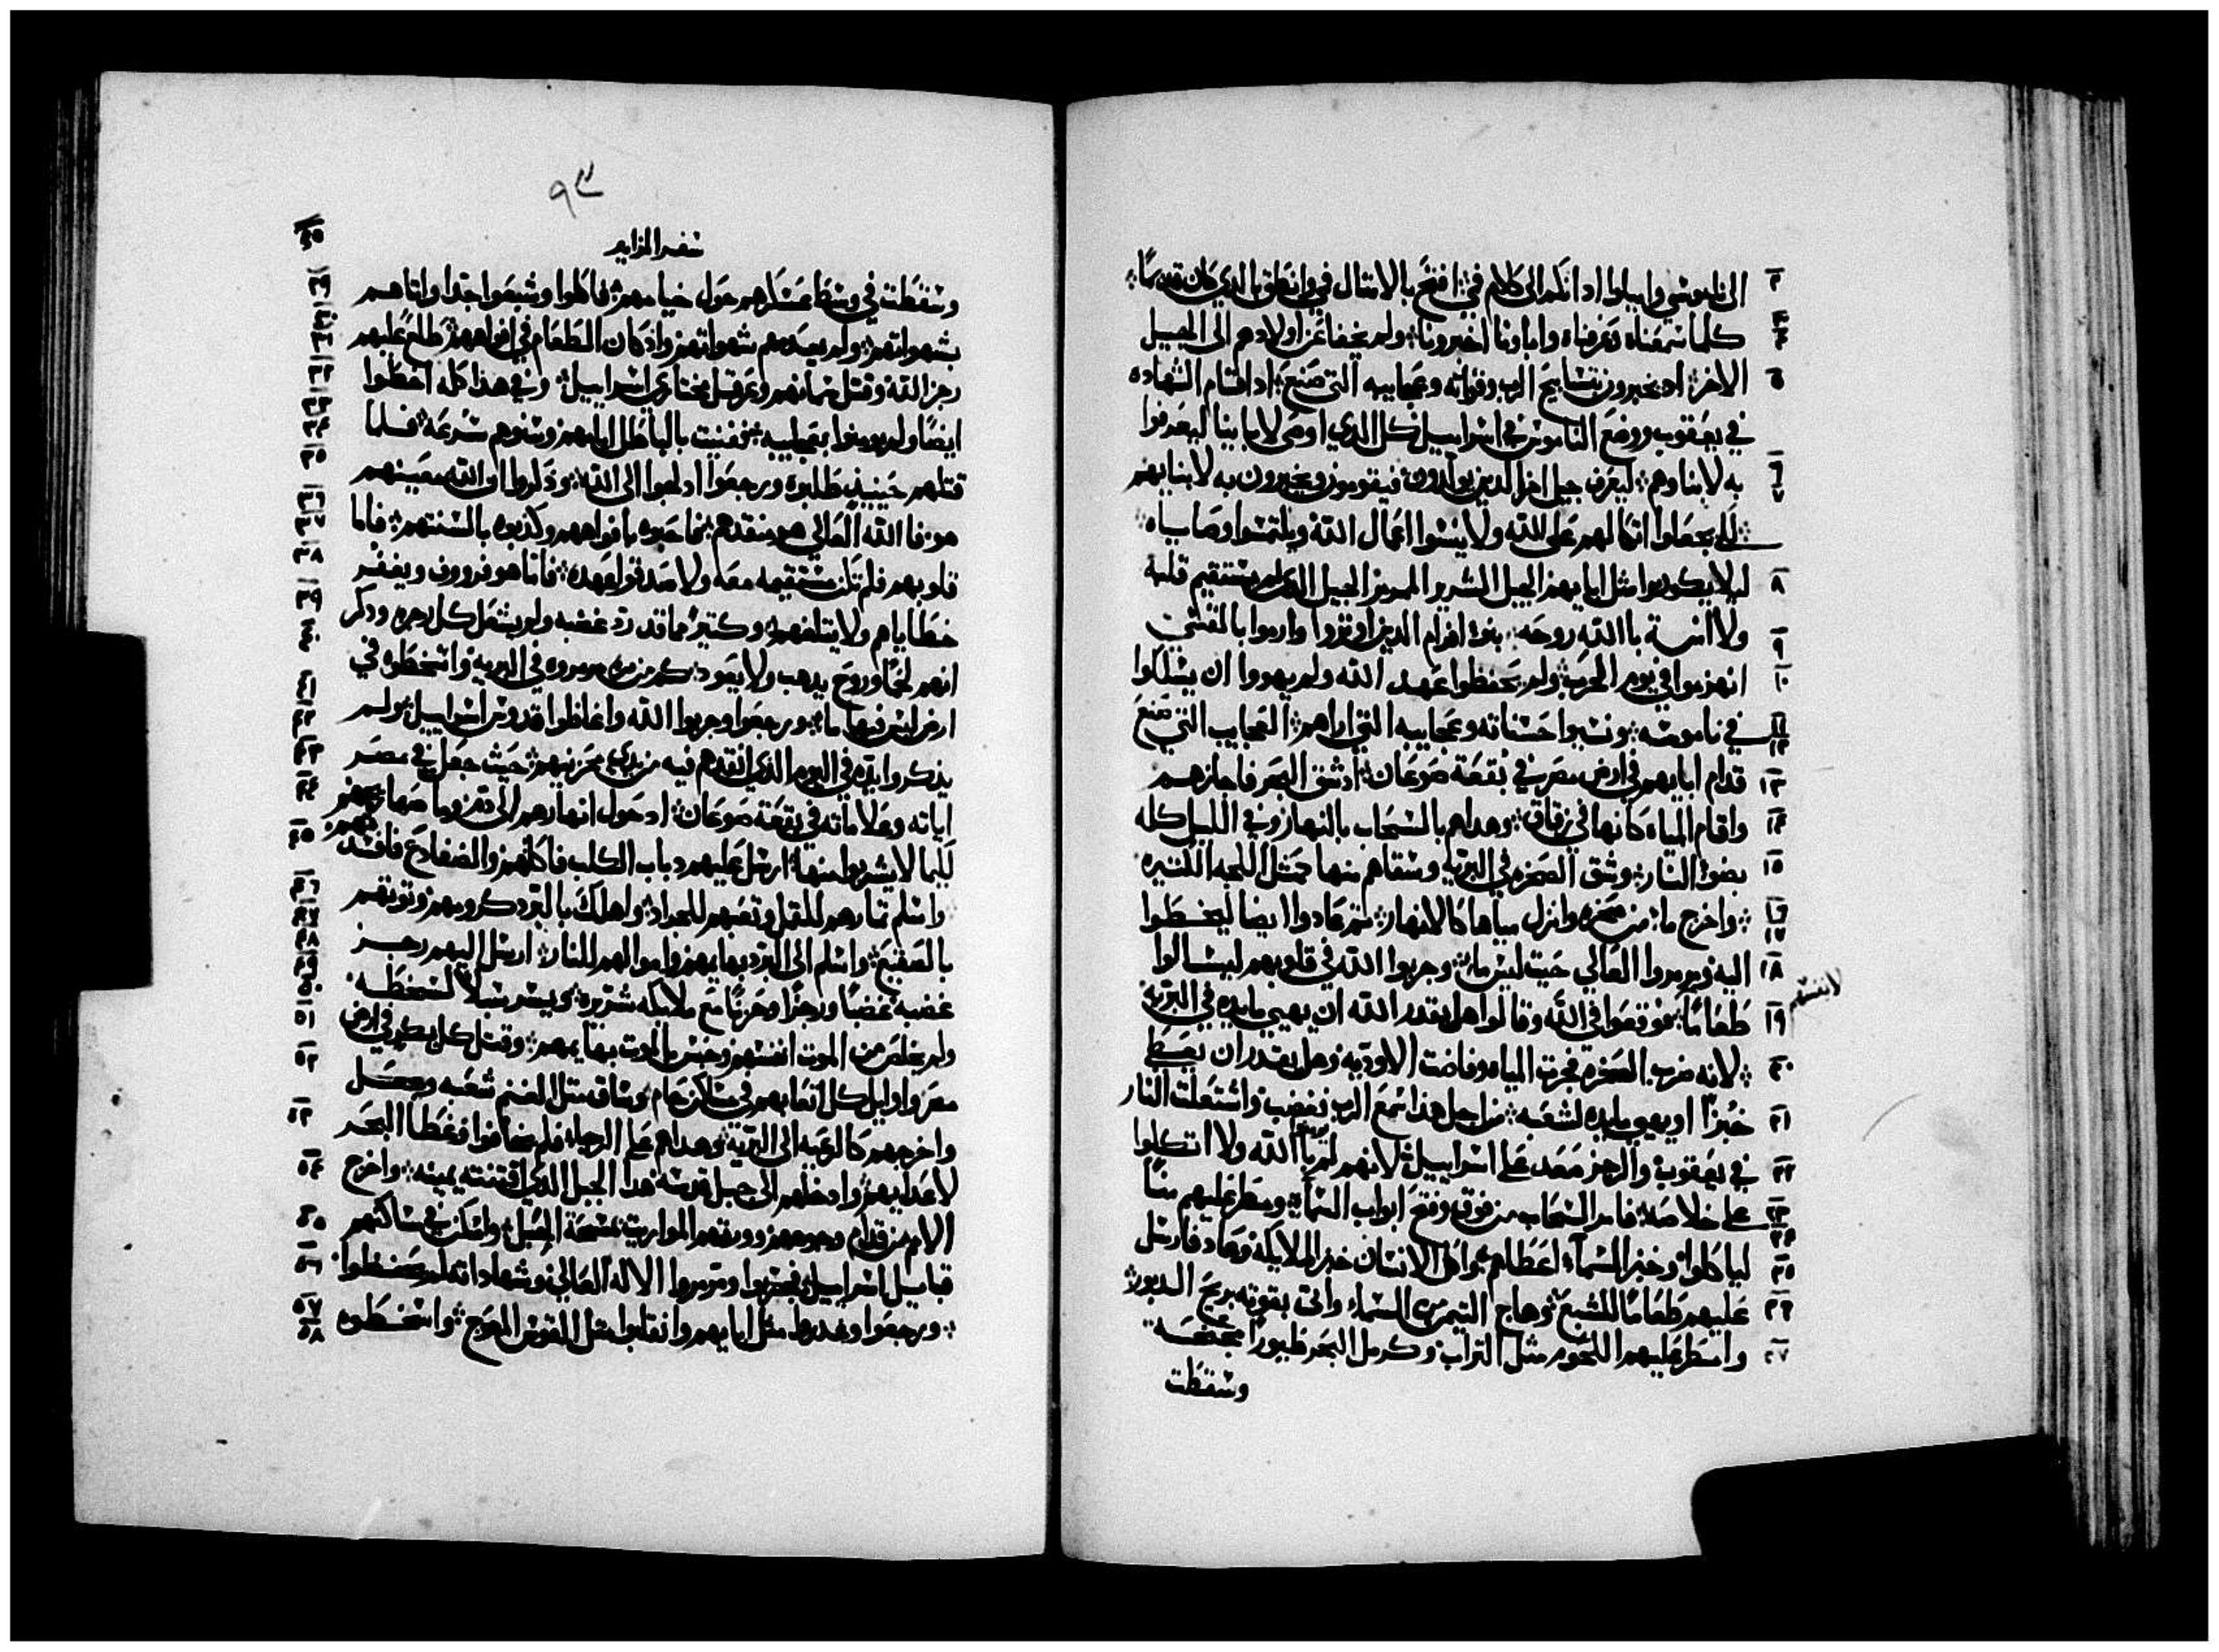 الى ناموسي واميلوا اذانكم الى كلام فمي افتح بالامثال فمي وانطق بالذي كان قديمًا
كلما سمعناه وعرفناه واباونا اخبرونا ولم يخفا عن اولادهم الى الجيل
الاخر اذ يخبرون بتسابيح الرب وقواته وعجايبه التي صنع اذ اقام الشهاده
في يعقوب ووضع الناموس في اسراييل كل الذي اوصى لابايينا ليعرفوا
به لابناوهم ليعرف جيل اخر الذين يولدون فيقومون ويخبرون به لابنايهم
لكي يجعلوا اتكالهم على الله ولا ينسوا اعمال الله ويلتمسوا وصاياه
ليلا يكونوا مثل ابايهم الجيل الشرير المرمر الجيل الذي لم يستقيم قلبه
ولا امنة بالله روحه بنوا افرام الذين اوتروا وارموا بالقسي
انهزموا في يوم الحرب ولم يحفظوا عهد الله ولم يهووا ان يسلكوا
في ناموسه ونسيوا حسناته وعجايبه التي اراهم العجايب التي صنع
قدام ابايهم في ارض مصر في بقعة صوعان اذ شق البحر فاجازهم
واقام المياه كانها في زقاق وهداهم بالسحاب بالنهار وفي الليل كله
بضو النار وشق الصخره في البريه وسقاهم منها كمثل اللجه الكثيره
واخرج ما من صخره وانزل مياها كالانهار ثم عادوا ايضا ليخطوا
اليه ومرمروا العالي حيث ليس ما وجربوا الله في قلوبهم ليسالوا
لانفسهم
طعامًا ووقعوا في الله وقالوا هل يقدر الله ان يهيي مايده في البريه
لانه ضرب الصخره فجرت المياه وفاضت الاوديه وهل يقدر ان يعطي
خبزًا او يهيي مايده لشعبه من اجل هذا سمع الرب فغضب واشتعلت النار
في يعقوب والرجز صعد على اسراييل لانهم لم يومنوا بالله ولا اتكلوا
على خلاصه فامر السحاب من فوق وفتح ابواب السماء ومطر عليهم منًا
لياكلوا وخبز السماء اعطاهم واكل الانسان خبز الملايكه وعاد فارسل
عليهم طعامًا للشبع وهاج التيمن من السماء واتى بقوته بريح الدبور
وامطر عليهم اللحوم مثل التراب وكرمل البحر طيورًا مجنحه
وسقطت
٩٣
سفر المزامير
وسقطت في وسط عسكرهم حول خيامهم فاكلوا وشبعوا جدا واتاهم
بشهواتهم ولم يعدمهم شهواتهم واذ كان الطعام في افواههم طلع عليهم
رجز الله وقتل سمانهم وعرقل مختاري اسراييل وفي هذا كله اخطوا
ايضًا ولم يومنوا بعجايبه ففنيت بالباطل ايامهم وسنوهم بسرعه فلما
قتلهم حينيذ طلبوه ورجعوا ادلجوا الى الله وذكروا ان الله معينهم
هو فالله العالي هو منقذهم فخادعوه بافواههم وكذبوه بالسنتهم فاما
قلوبهم فلم تكن مستقيمه معه ولا صدقوا عهده فاما هو فرووف ويغفر
خطاياهم ولا يتلفهم وكثيرًا ما قد رد غضبه ولم يشعل كل رجزه وذكر
انهم لحمًا وروح يدهب ولا يعود كم من مره مرمروه في البريه واسخطوه في
ارض ليس فيها ما ورجعوا وجربوا الله واغاظوا قدوس اسراييل ولم
يذكروا يده في اليوم الذي انقذهم فيه من يدي محزنيهم حيث جعل في مصر
اياته وعلاماته في بقعة صوعان اذ حول انهارهم الى دم وما صهاريجهم
لكيما لا يشربوا منها ارسل عليهم دباب الكلب فاكلهم والضفادع فافسدتهم
واسلم ثمارهم للقمل وتعبهم للجراد واهلك بالبرد كرومهم وتوتهم
بالصقيع واسلم الى البرد بهايمهم واموالهم للنار ارسل اليهم رجز
غضبه غضبًا ورجزًا وحزنًا مع ملايكه شريره ويسر سبلا لسخطه
ولم يخلص من الموت انفسهم وحبس بالموت بهايمهم وقتل كل بكر في ارض
مصر واوايل كل اتعابهم في مساكن حام وساق مثل الغنم شعبه وجعل
واخرجهم كالرعيه الى البريه وهداهم على الرجاء فلم يخافوا وغطا البحر
لاعدايهم وادخلهم الى جبل قدسه هذا الجبل الذي اقتنته يمينه واخرج
الامم من قدام وجوههم وورثهم المواريت بسحة الحبل واسكن في مساكنهم
قبايل اسراييل فجربوا ومرمروا الاله العالي وشهاداته لم يحفظوا
ورجعوا وغدروا مثل ابايهم وانقلبوا مثل القوس المعوج واسخطوه